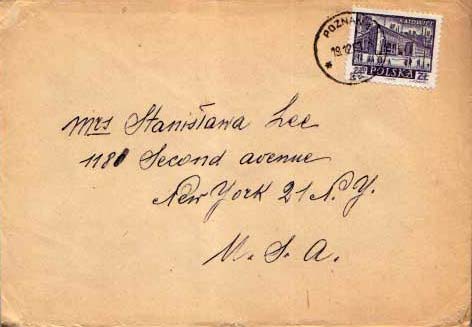 POZNAŃ
KATOWICE
POLSKA ZŁ
Mrs Stanisława Lee
1180 Second avenue
New York 21 N.Y.
U. S. A.